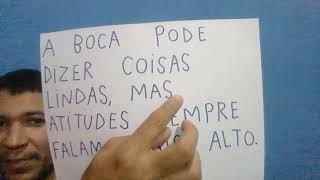 A BOCA PODE
DIZER COISAS
LINDAS, MAS
ATITUDES SEMPRE
FALAM ALTO.